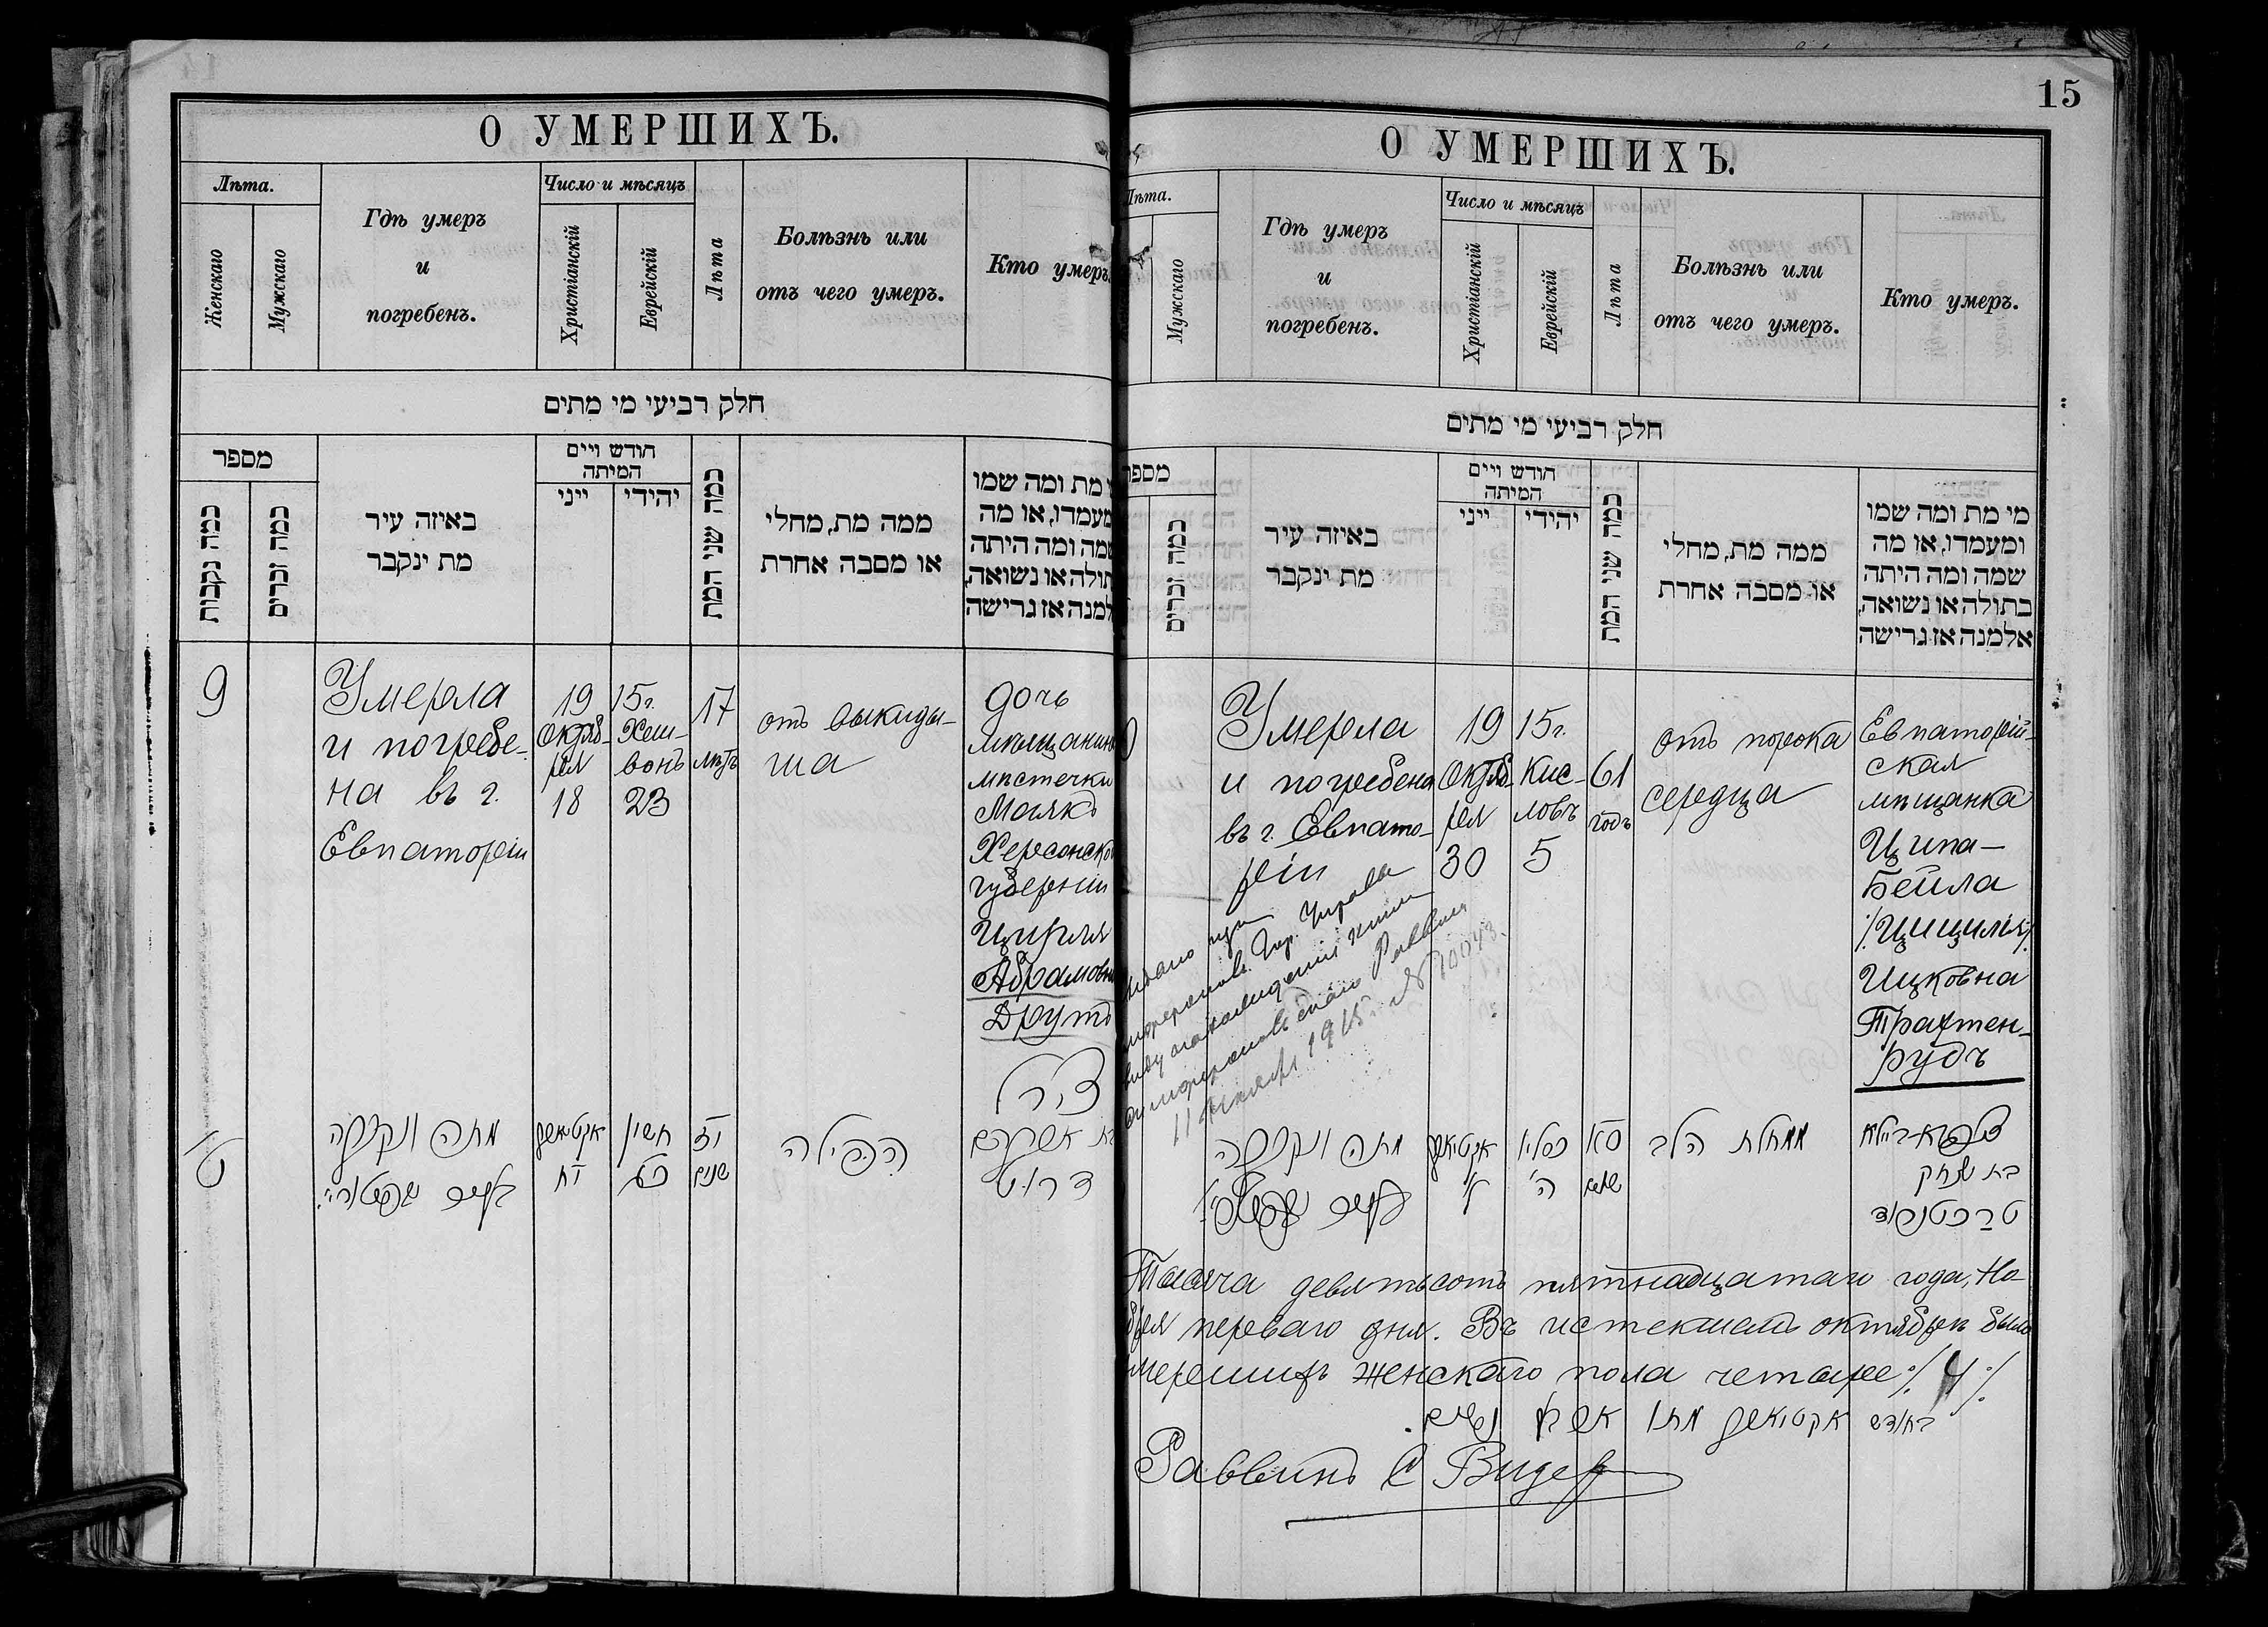 О УМЕРШИХЪ.
Лѣта.
Женскаго
Мужскаго
Гдѣ умеръ
и
погребенъ.
Число и мѣсяцъ
Христіанскій
Еврейскій
Лѣта
Болѣзнь или
отъ чего умеръ.
Кто умеръ.
חלק רביעי מי מתים
מספר
כמה נקבות
כמה זכרים
באיזה עיר
מת ינקבר
חודש ויים
המיתה
ייני
יהידי
כמה שני המת
ממה מת, מחלי
או מסבה אחרת
מת ומה שמו
מעמדו, או מה
שמה ומה היתה
תולה או נשואה,
למנה אז גרישה
9
Умерла
и погребе-
на въ г.
Евпаторіи
19
Октяб-
ря
18
15 г.
Хеш-
вонъ
23
17
лѣтъ
отъ выкиды-
ша
дочь
мѣщанина
мѣстечка
Маякъ
Херсонской
губерніи
Цирля
Абрамовна
Друтъ
ט
מתה ונקברה
חשון
שנים
הפילה
דרוט
15
О УМЕРШИХЪ.
Лѣта.
Мужскаго
Гдѣ умеръ
и
погребенъ.
Число и мѣсяцъ
Христіанскій
Еврейскій
Лѣта
Болѣзнь или
отъ чего умеръ.
Кто умеръ.
חלק רביעי מי מתים
מספר
כמה זכרים
באיזה עיר
מת ינקבר
חודש ויים
המיתה
ייני
יהידי
כמה שני המת
ממה מת, מחלי
או מסבה אחרת
מי מת ומה שמו
ומעמדו, או מה
שמה ומה היתה
בתולה או נשואה,
אלמנה אז גרישה
Умерла
и погребена
въ г. Евпато-
ріи
19
Октяб-
ря
30
15 г.
Кис-
ловъ
5
61
годъ
отъ порока
сердца
Евпаторій-
ская
мѣщанка
Ципа-
Бейла
/Цицилія/
Ицковна
Трахтен-
рудъ
Гор. Управа
1915 г. № 10043.
מתה ונקברה
כסליו
ה'
ממחלת הלב
בת יצחק
טרכטנרוד
Тысяча девятьсотъ пятнадцатаго года, Но-
ября перваго дня. Въ истекшемъ октябрѣ было
умершихъ женскаго пола четыре ·/. 4 ·/.
בחודש אקטיאבר מתו ארבע נשים.
Раввинъ С Видер